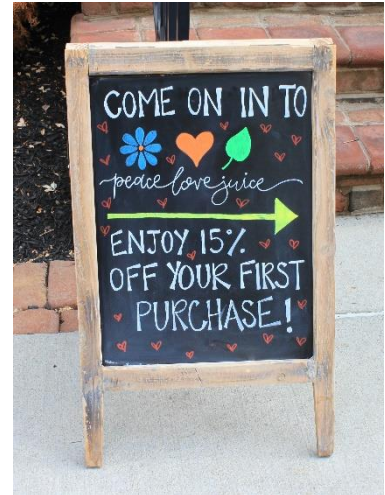 COME ON IN TO
peace love juice
ENJOY 15%
OFF YOUR FIRST
PURCHASE!